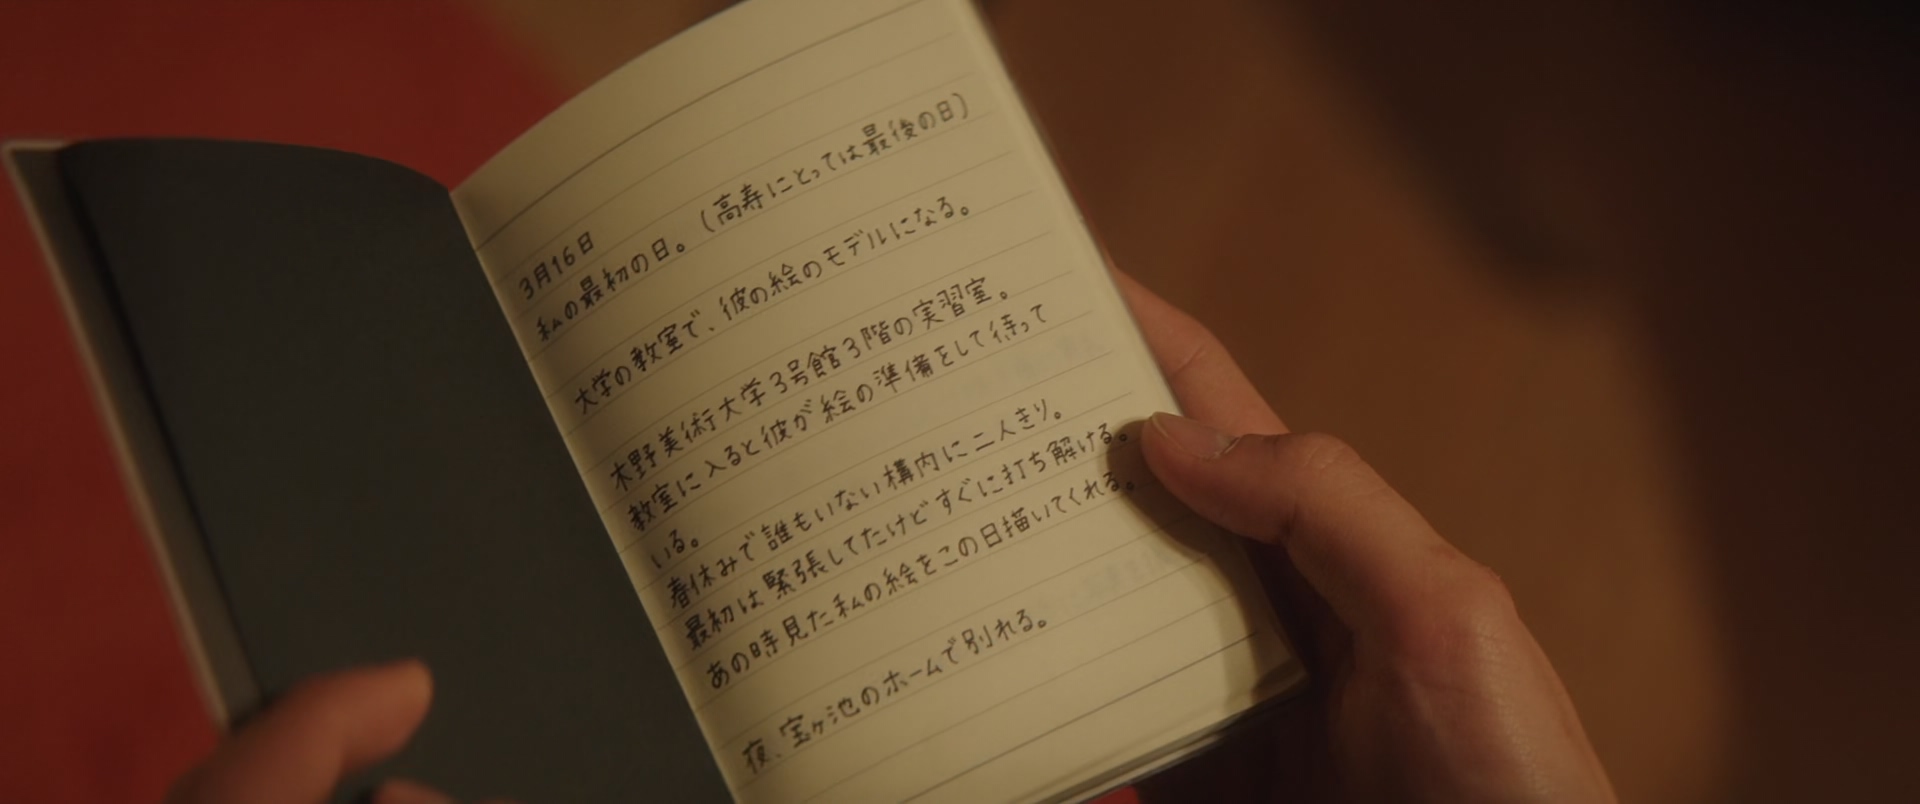 3月16日
私の最初の日。(高寿にとっては最後の日)
大学の教室で、彼の絵のモデルになる。
木野美術大学3号館3階の実習室。
教室に入ると彼が絵の準備をして待って
いる。
春休みで誰もいない構内に二人きり。
最初は緊張してたけどすぐに打ち解ける。
あの時見た私の絵をこの日描いてくれる。
夜、宝ヶ池のホームで別れる。